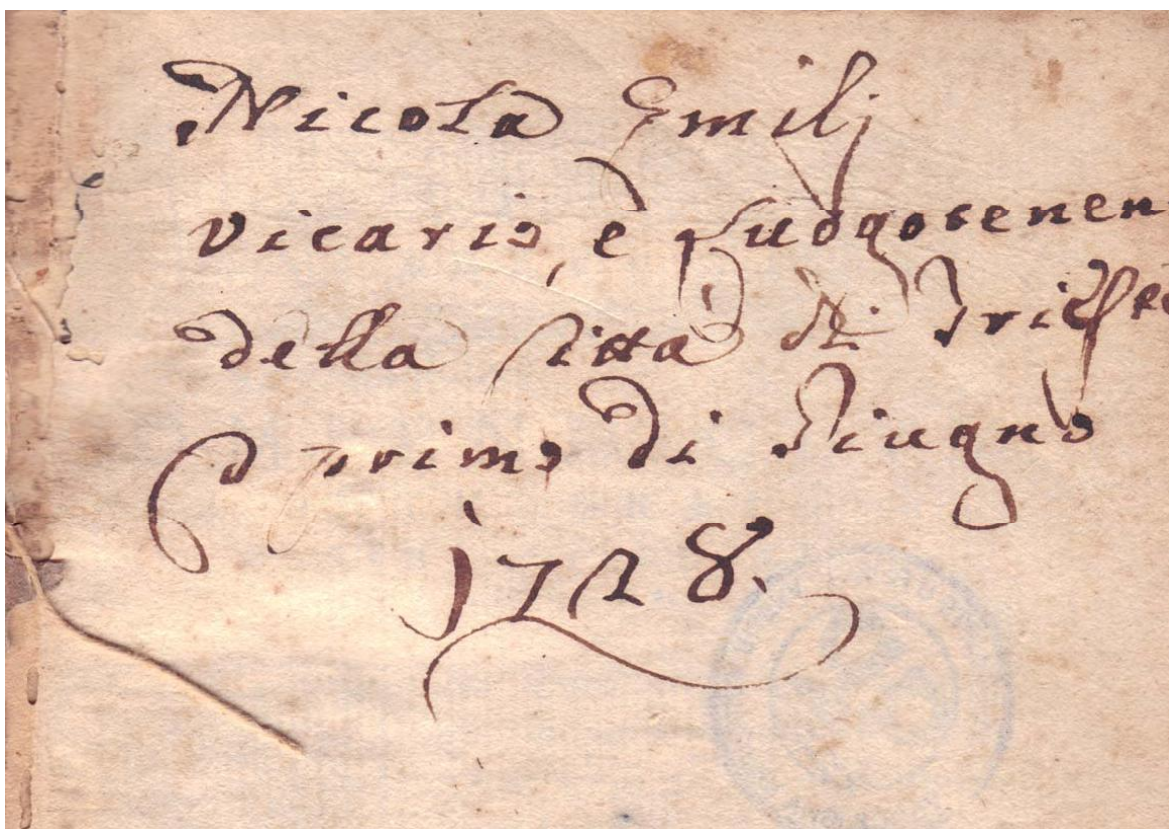 Nicola Emilj
vicario, e Luogotenen
della Città di Trieste
primo di Giugno
1728.